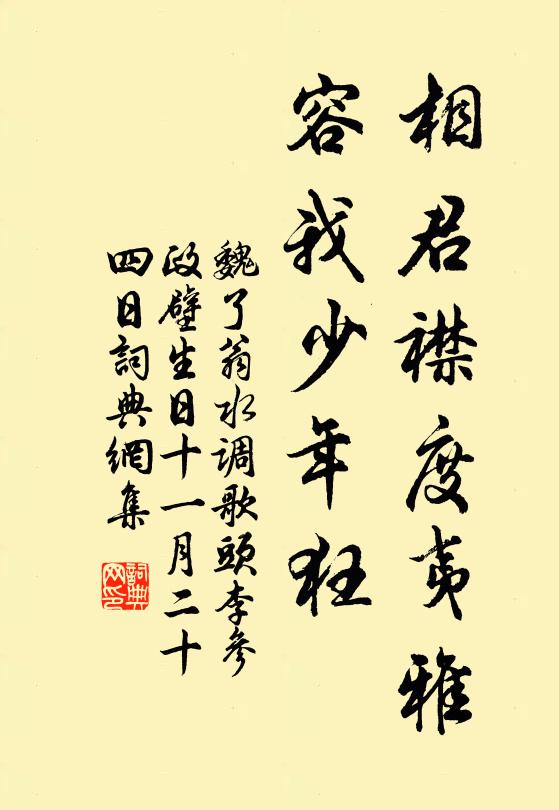 相君襟度夷雅
容我少年狂
魏了翁水调歌頭李參
政壁生日十一月二十
四日詞典網集
詞典
网印